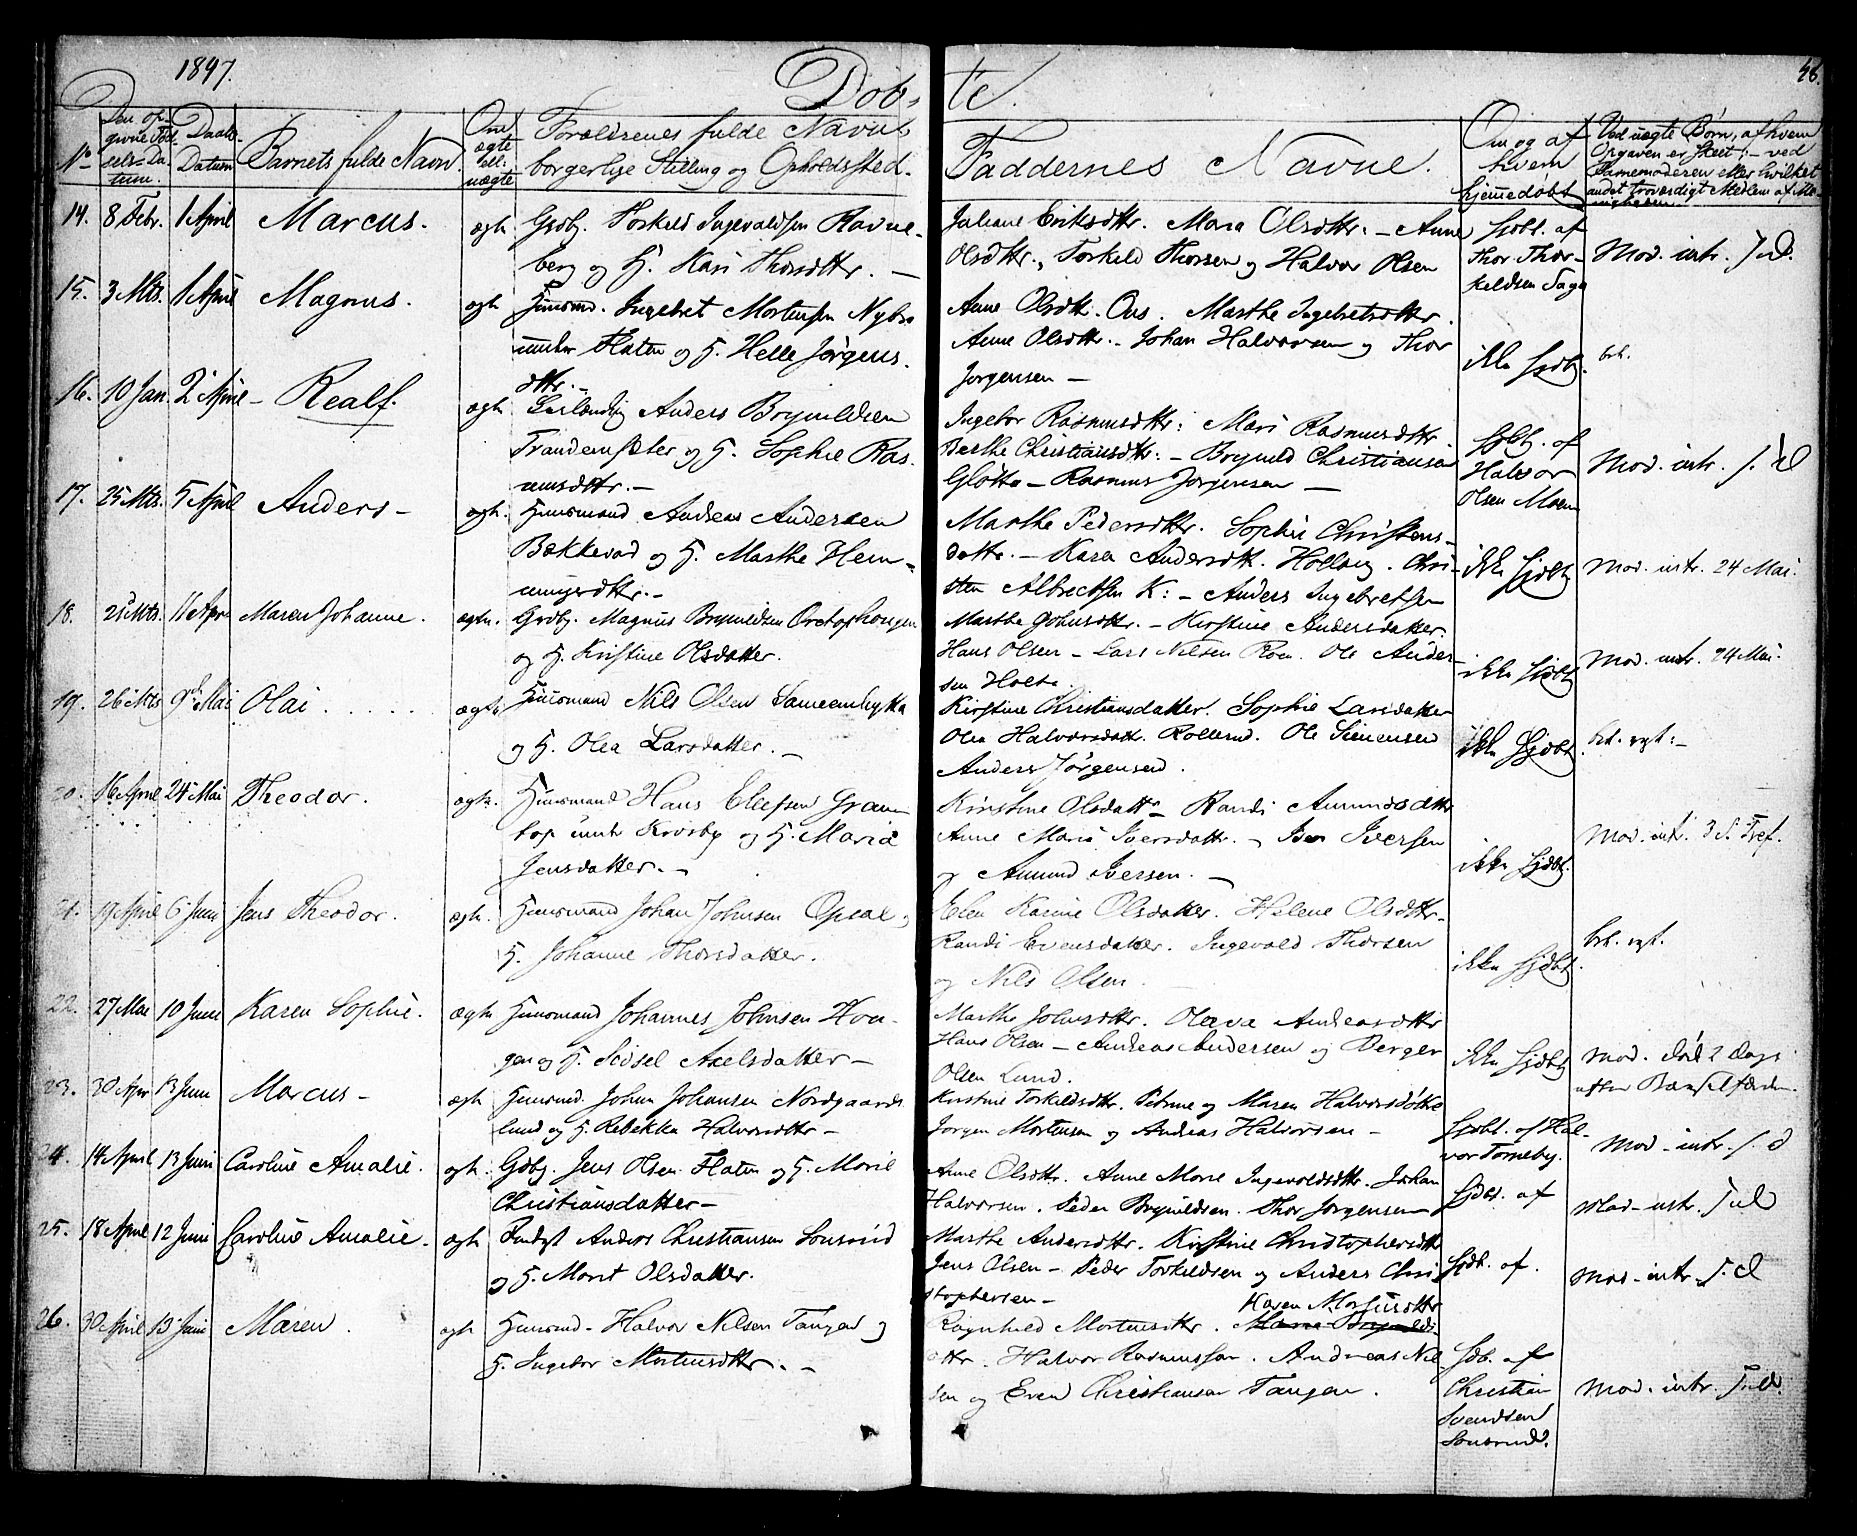 1847.
Dob-
te.
46.
No
Den op-
givne Fød-
sels-Da-
tum.
Daabs-
Datum
Barnets fulde Navn.
Om
ægte
ell:
uægte
Forældrenes fulde Navne,
borgerlige Stilling og Opholdssted.
Faddernes Navne.
Om og af
hvem
hjemmedøbt
Ved uægte Børn, af hvem
Opgaven er skeet: - ved
Barnemoderen eller hvilket
andet troværdigt Medlem af Me-
nigheden
14. 8 Febr. 1 April Marcus. ægte Grdbr. Torkild Ingevaldsen Ravne-
berg og H. Kari Thorsdttr. -
Juliane Eriksdttr. Maria Olsdttr. - Anne
Olsdttr., Torkild Thorsen og Halvor Olsen
hjdbt. af
Thor Thor-
keldsen
Mod. intr.
15. 3 Mts. 1 April Magnus. ægte Huusmd. Ingebret Mortensen
under Flaten og H. Helle Jørgens
dttr. -
Anne Olsdttr. Marthe Ingebretsdttr.
Anne Olsdttr. - Johan Halvorsen og Thor
Jørgensen -
ikke hjdbt.
16. 10 Jan. 2 April - Realf. ægte Anders Brynildsen
og H. Sophie Ras-
musdttr. -
Ingebor Rasmusdttr: Mari Rasmusdttr.
Berthe Christiansdttr: - Brynild Christiansen
Rasmus Jørgensen -
hjdbt. af
Halvor
Olsen Moen
Mod. intr.
17. 25 Mts. 5 April Anders - ægte. Huusmand Andreas Andersen
Bækkevad og H. Marthe Hem-
mingsdttr. -
Marthe Pedersdttr. Sophie Christens-
dattr. - Karen Andersdtt. Chri-
sten Albrectsen K: - Anders Ingebretsen
ikke hjdbt.
Mod. intr. 24 Mai.
18. 21 Mts. 11 April Maren Johanne. ægte. Grdbr. Magnus Brynildsen
og H. Kristine Olsdatter.
Marthe Johnsdttr. - Kirstine Andersdatter.
Hans Olsen - Lars Nilsen Roen. Ole Ander-
sen Holte.
ikke hjdbt
Mod. intr. 24 Mai.
19. 26 Mts 9de Mai Olai . . . . . ægte Huusmand Nils Olsen
og H. Olea Larsdatter. -
Kirstine Christiansdatter. Sophie Larsdatter
Olea Halvorsdatt. Ole Simensen
Anders Jørgensen.
ikke hjdbt
20. 16 April 24 Mai Theodor. ægte. Huusmand Hans Gran-
top under Krosby og H. Maria
Jensdatter. -
Kirstine Olsdattr - Randi Amundsdttr
Anne Marie Iversdattr. - Iver Iversen
og Amund Iversen. -
ikke hjdbt.
Mod. intr. 3 S. Tref.
21. 17 April 6 Juni Jens Theodor. ægte. Huusmand Johan Johnsen Opsal og
H. Johanne Thorsdatter.
Elen Karine Olsdatter. Helene Olsdttr.
Randi Evensdatter. Ingevald Thorsen
og Nils Olsen.
ikke hjdbt.
22. 27 Mai 10 Juni Karen Sophie. ægte Huusmand Johannes Johnsen Hou-
gen og H. Sidsel Axelsdatter -
Marthe Johnsdttr. Oleava Andreasdttr
Hans Olsen - Andreas Andersen og Berger
Olsen Lund.
ikke hjdbt
Mod. død 2 Dage
efter Barselfærden.
23. 30 Apr 13 Juni Marcus - ægte Huusmd. Johan Johansen Nordgaards
lund og H. Rebekka Halvorsdttr -
Kirstine Torkildsdttr. Petrine og Maren Halvorsdøttre
Jørgen Mortensen og Andreas Halvorsen -
hjdbt. af Hal-
vor Torneby.
Mod. intr.
24. 14 April 13 Juni Caroline Amalie. ægte. Grdbr. Jens Olsen Flaten og H. Marie
Christiansdatter -
Anne Olsdttr. Anne Marie Ingevaldsdttr. Johan
Halvorsen. Peder Brynildsen. Thor Jørgensen
hjdbt. af
Mod. intr.
25. 18 April 12 Juni Caroline Amalie - ægte Anders Christiansen Sonsrud
og H. Marit Olsdatter.
Marthe Andersdttr. Kirstine Christophersdttr
Jens Olsen - Peder Torkildsen og Anders Chri
stophersen -
hjdbt. af.
Mod. intr.
26. 30 April 13 Juni Maren. ægte Huusmd - Halvor Nilsen Tangen og
H. Ingebor Mortensdttr. -
Karen Mortensdttr
Ragnhild Mortensdttr. Maria Brynilds-
dttr. Halvor Rasmussen. Andreas Nil
sen og Even Christiansen Tangen.
hjdb. af
Christian
Svendsen
Sonsrud.
Mod. intr.